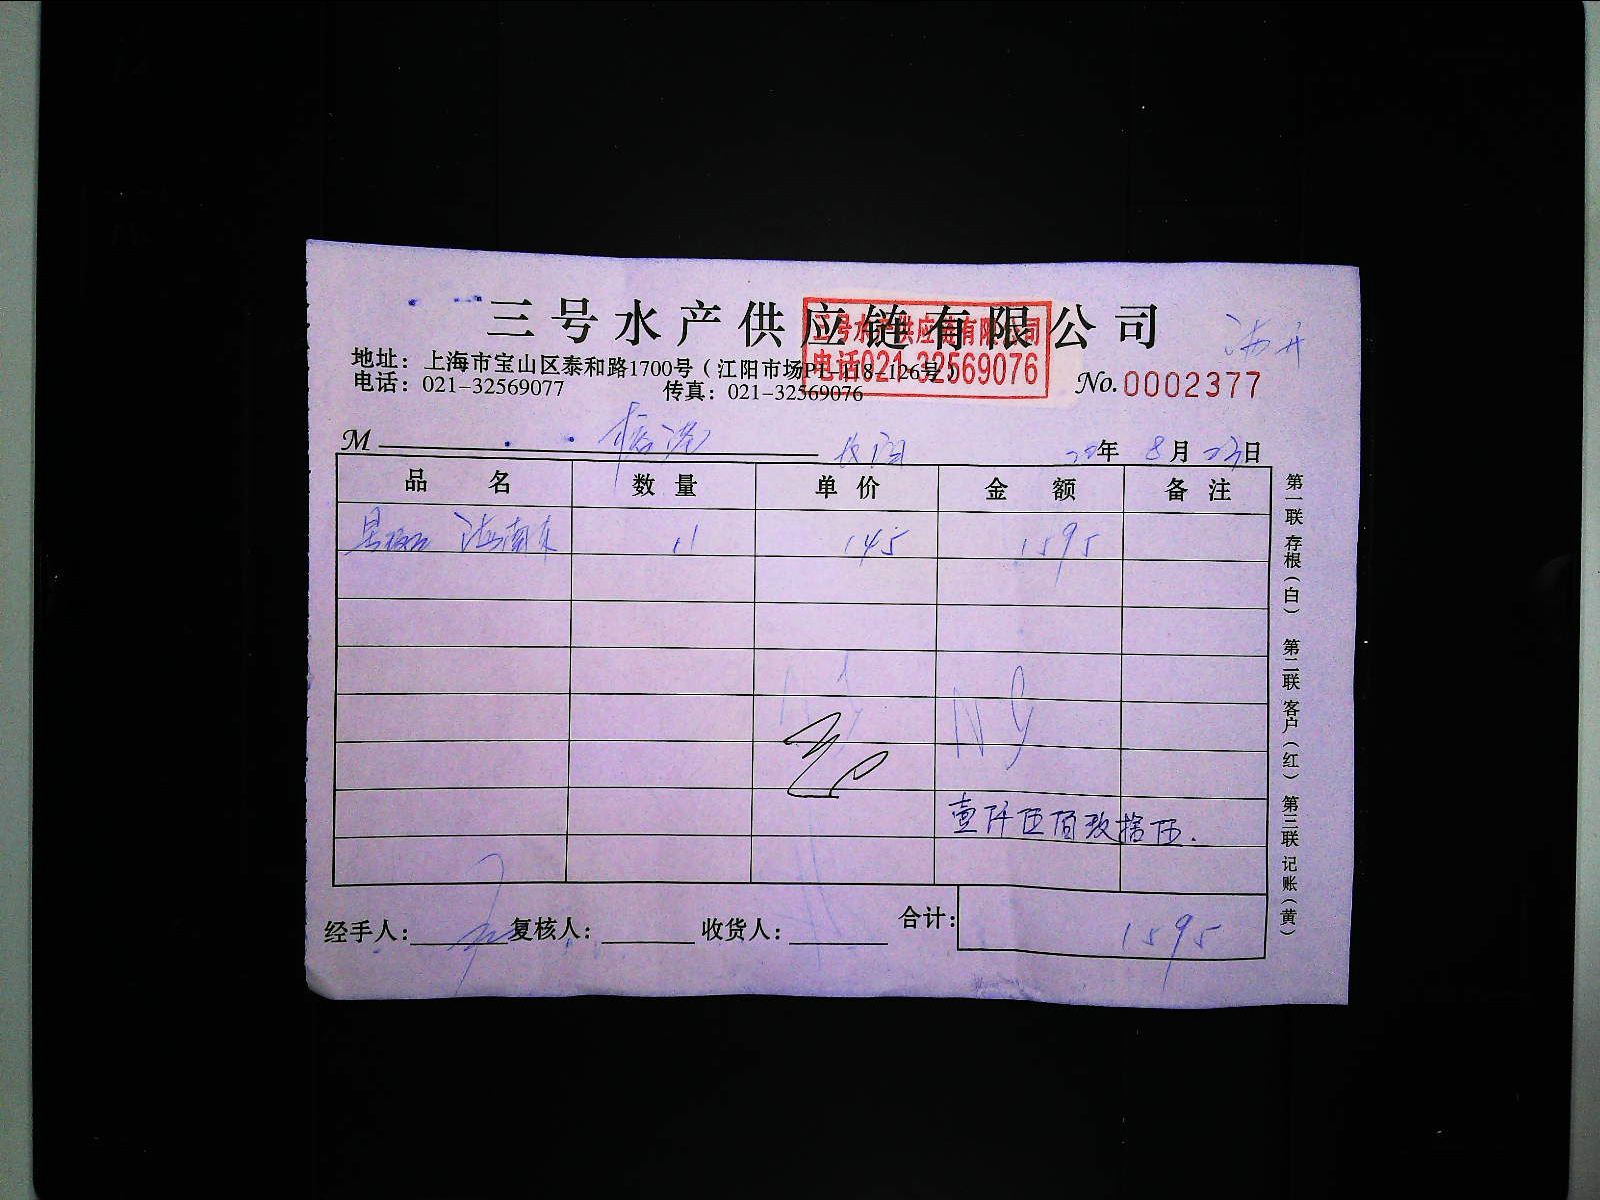 三号水产供应链有限公司
三号水产供应链有限公司
电话021-32569076
地址：上海市宝山区泰和路1700号（江阳市场P1-118-126号）
电话：021-32569077 传真：021-32569076
No.0002377
M
20年 8月23日
品名 数量 单价 金额 备注
11 145 1595
壹仟伍佰玖拾伍.
经手人： 复核人： 收货人： 合计： 1595
第一联 存根（白） 第二联 客户（红） 第三联 记账（黄）